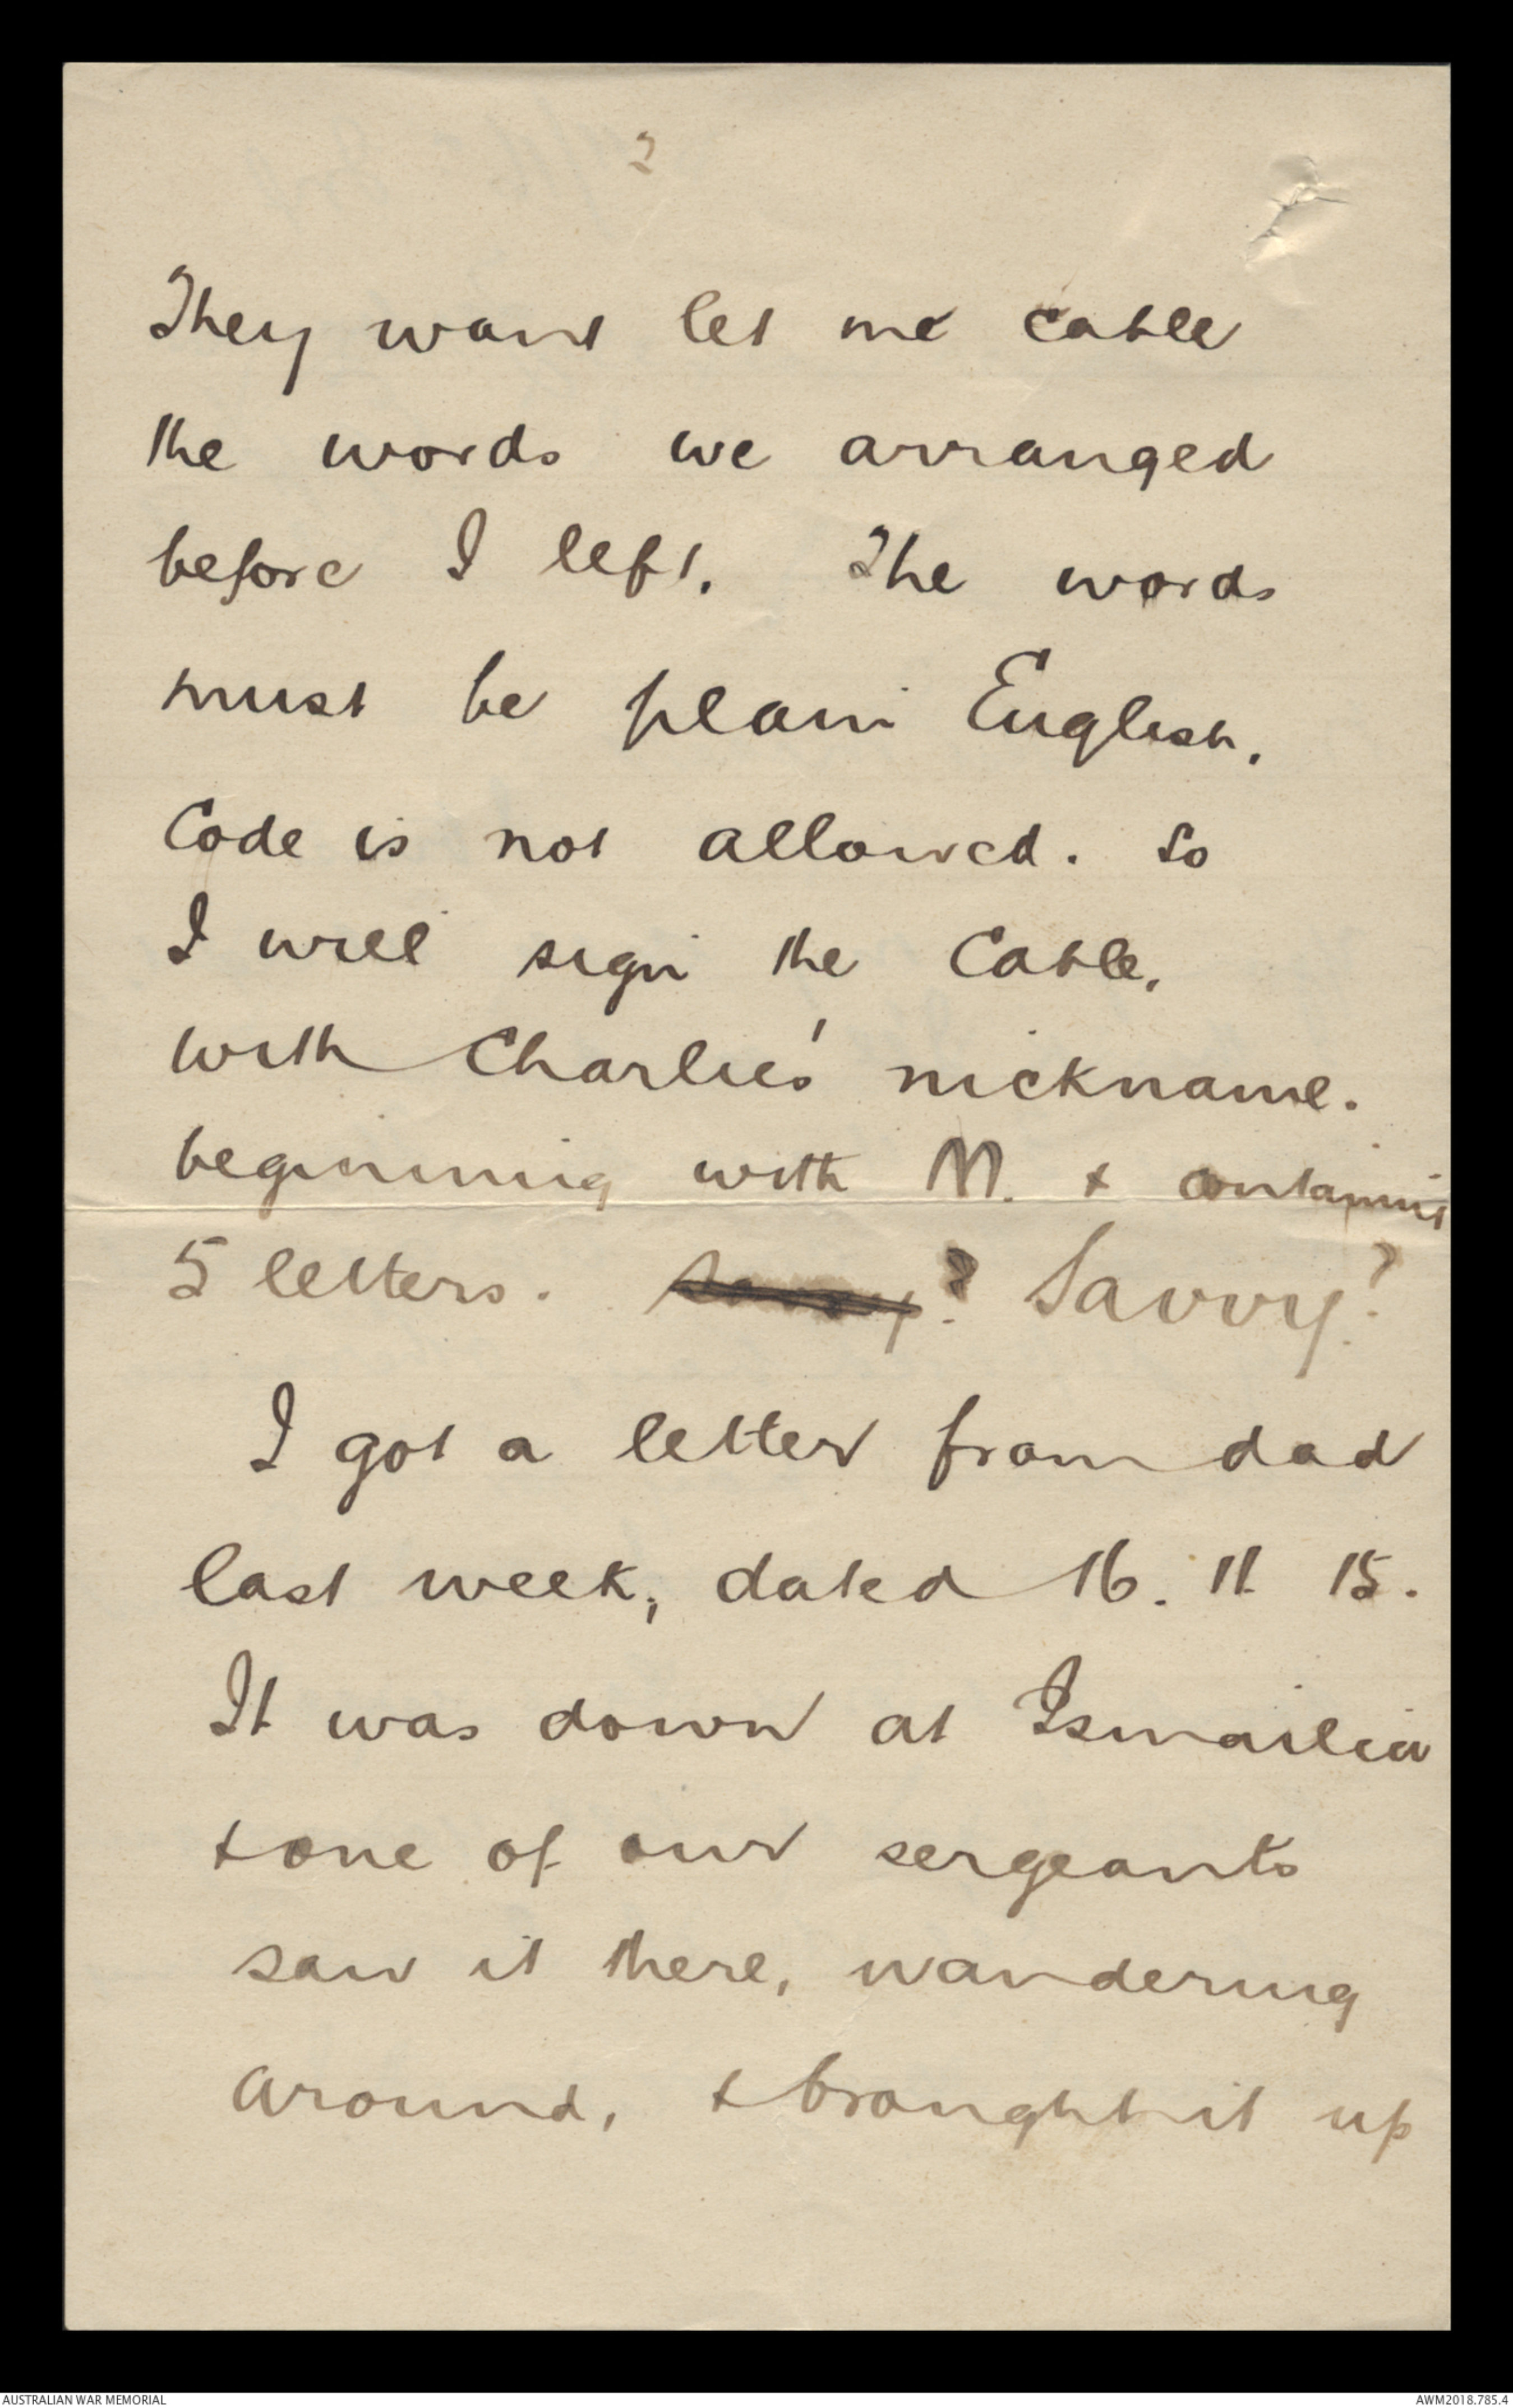 2
They wont let me cable
the words we arranged
before I left. The words
must be plain English.
Code is not allowed. So
I will sign the Cable,
with Charlie's nickname.
beginning with M. & containing
5 letters. Savvy? Savvy?
I got a letter from dad
last week, dated 16. 11 15.
It was down at Ismailia
& one of our sergeants
saw it there, wandering
around, & brought it up
AUSTRALIAN WAR MEMORIAL
AWM2018.785.4